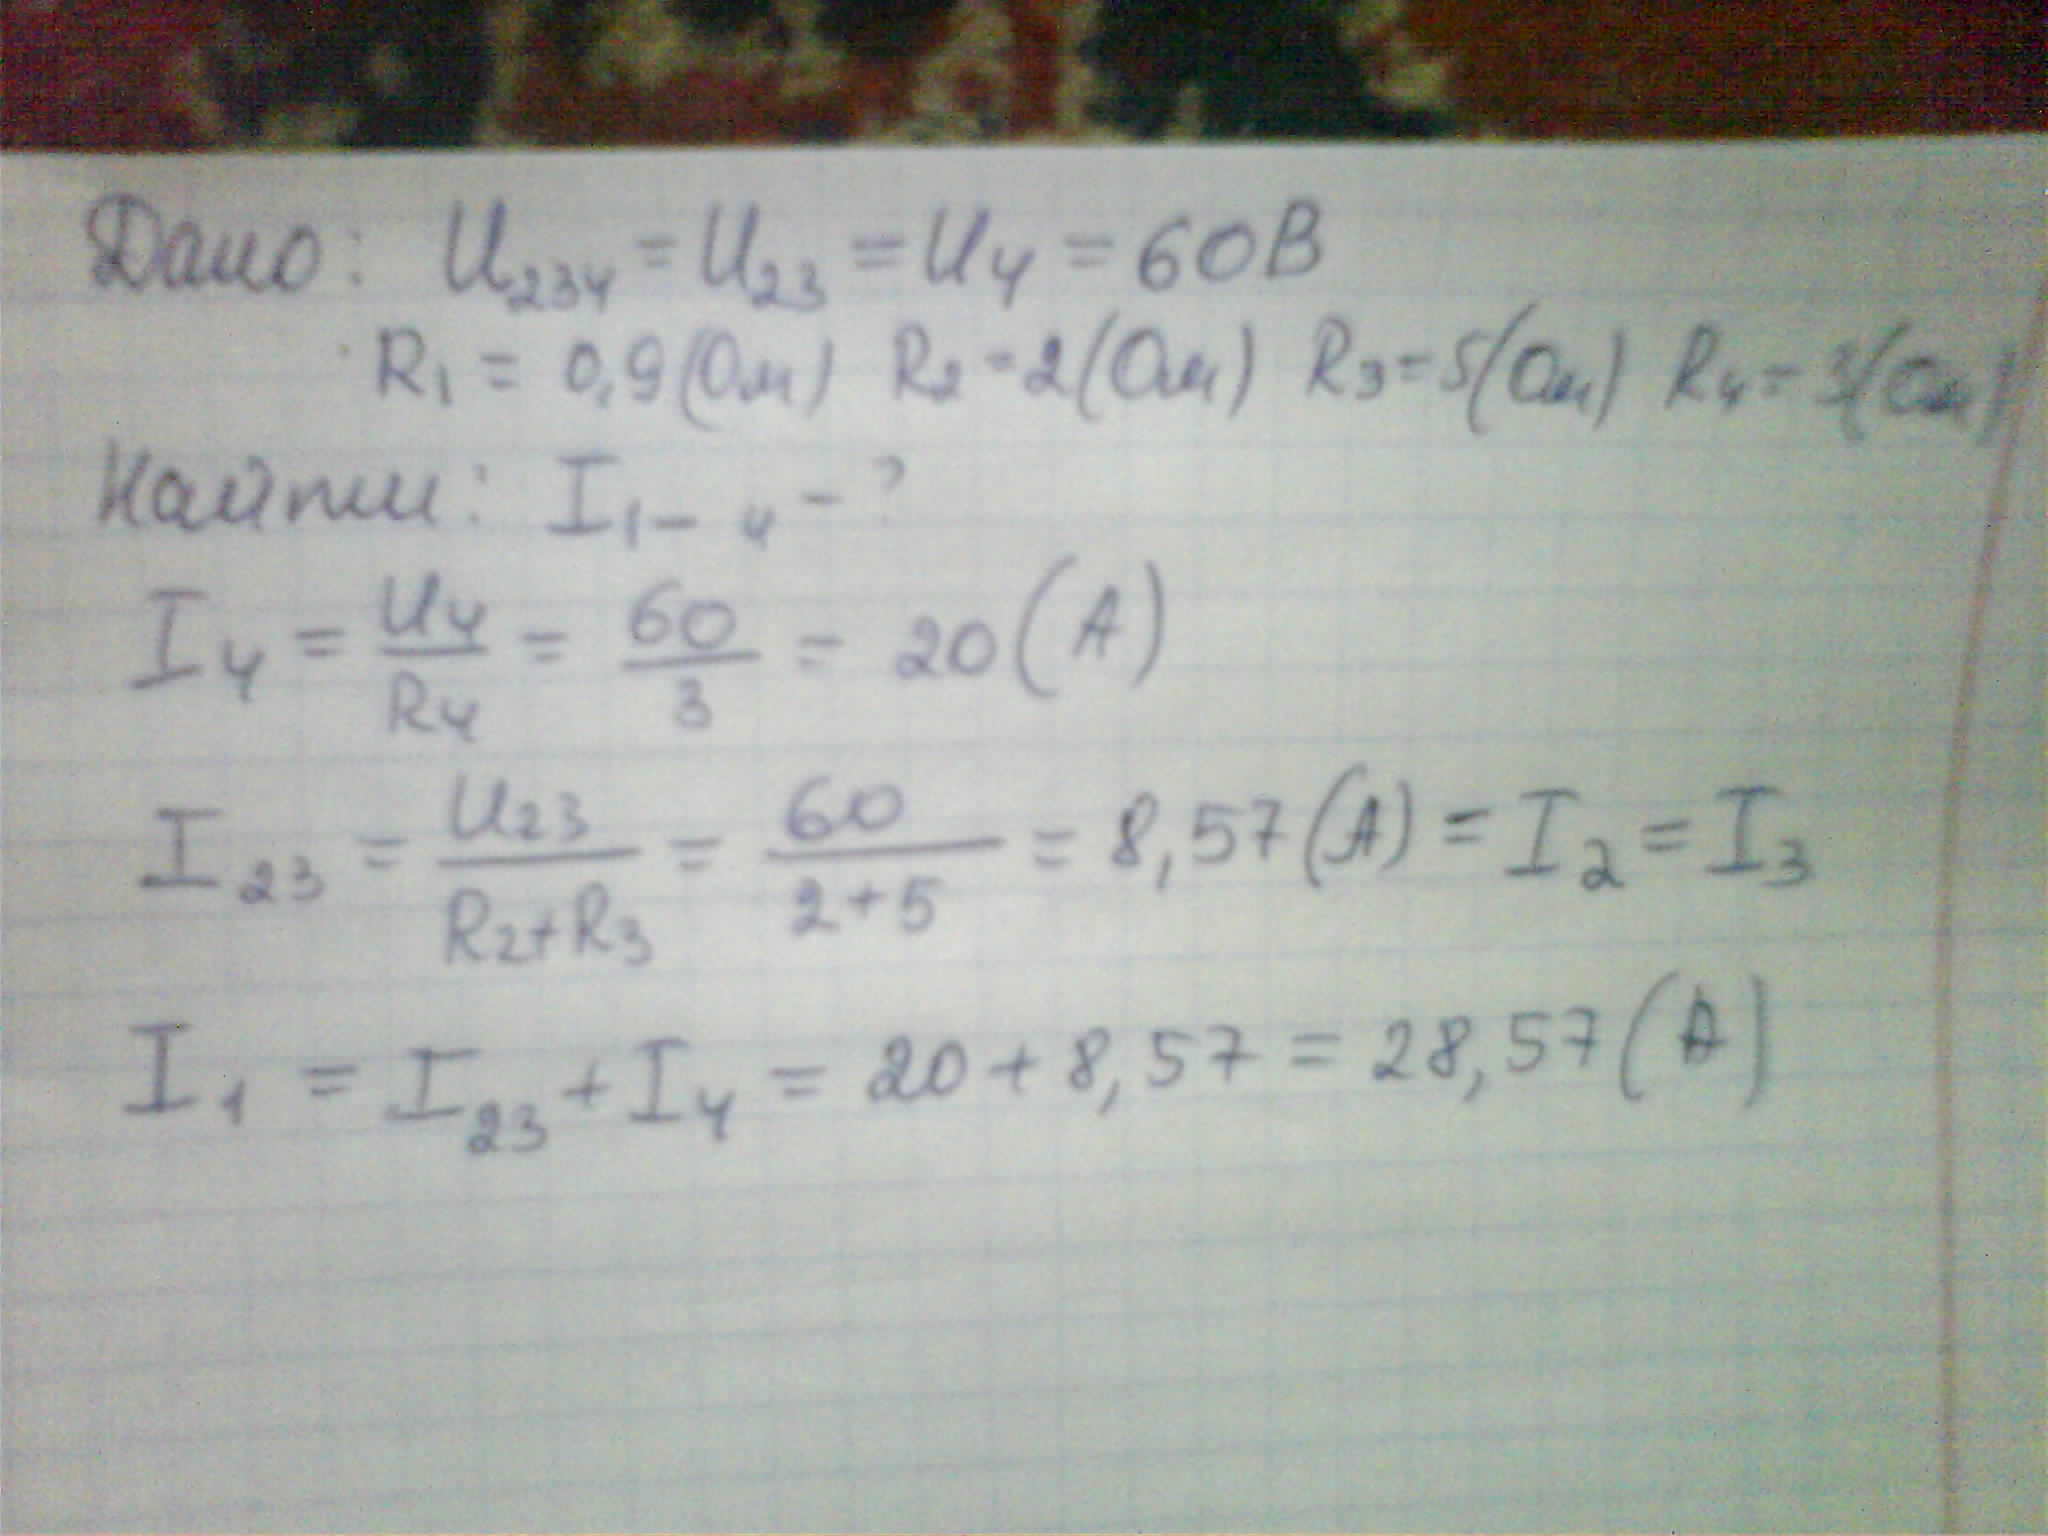 Дано: U₂₃₄ = U₂₃ = U₄ = 60В
R₁ = 0,9(Ом) R₂ = 2(Ом) R₃ = 5(Ом) R₄ = 3(Ом)
Найти: I₁₋₄ - ?
I₄ = U₄/R₄ = 60/3 = 20(А)
I₂₃ = U₂₃/(R₂+R₃) = 60/(2+5) = 8,57(А) = I₂ = I₃
I₁ = I₂₃ + I₄ = 20 + 8,57 = 28,57(А)